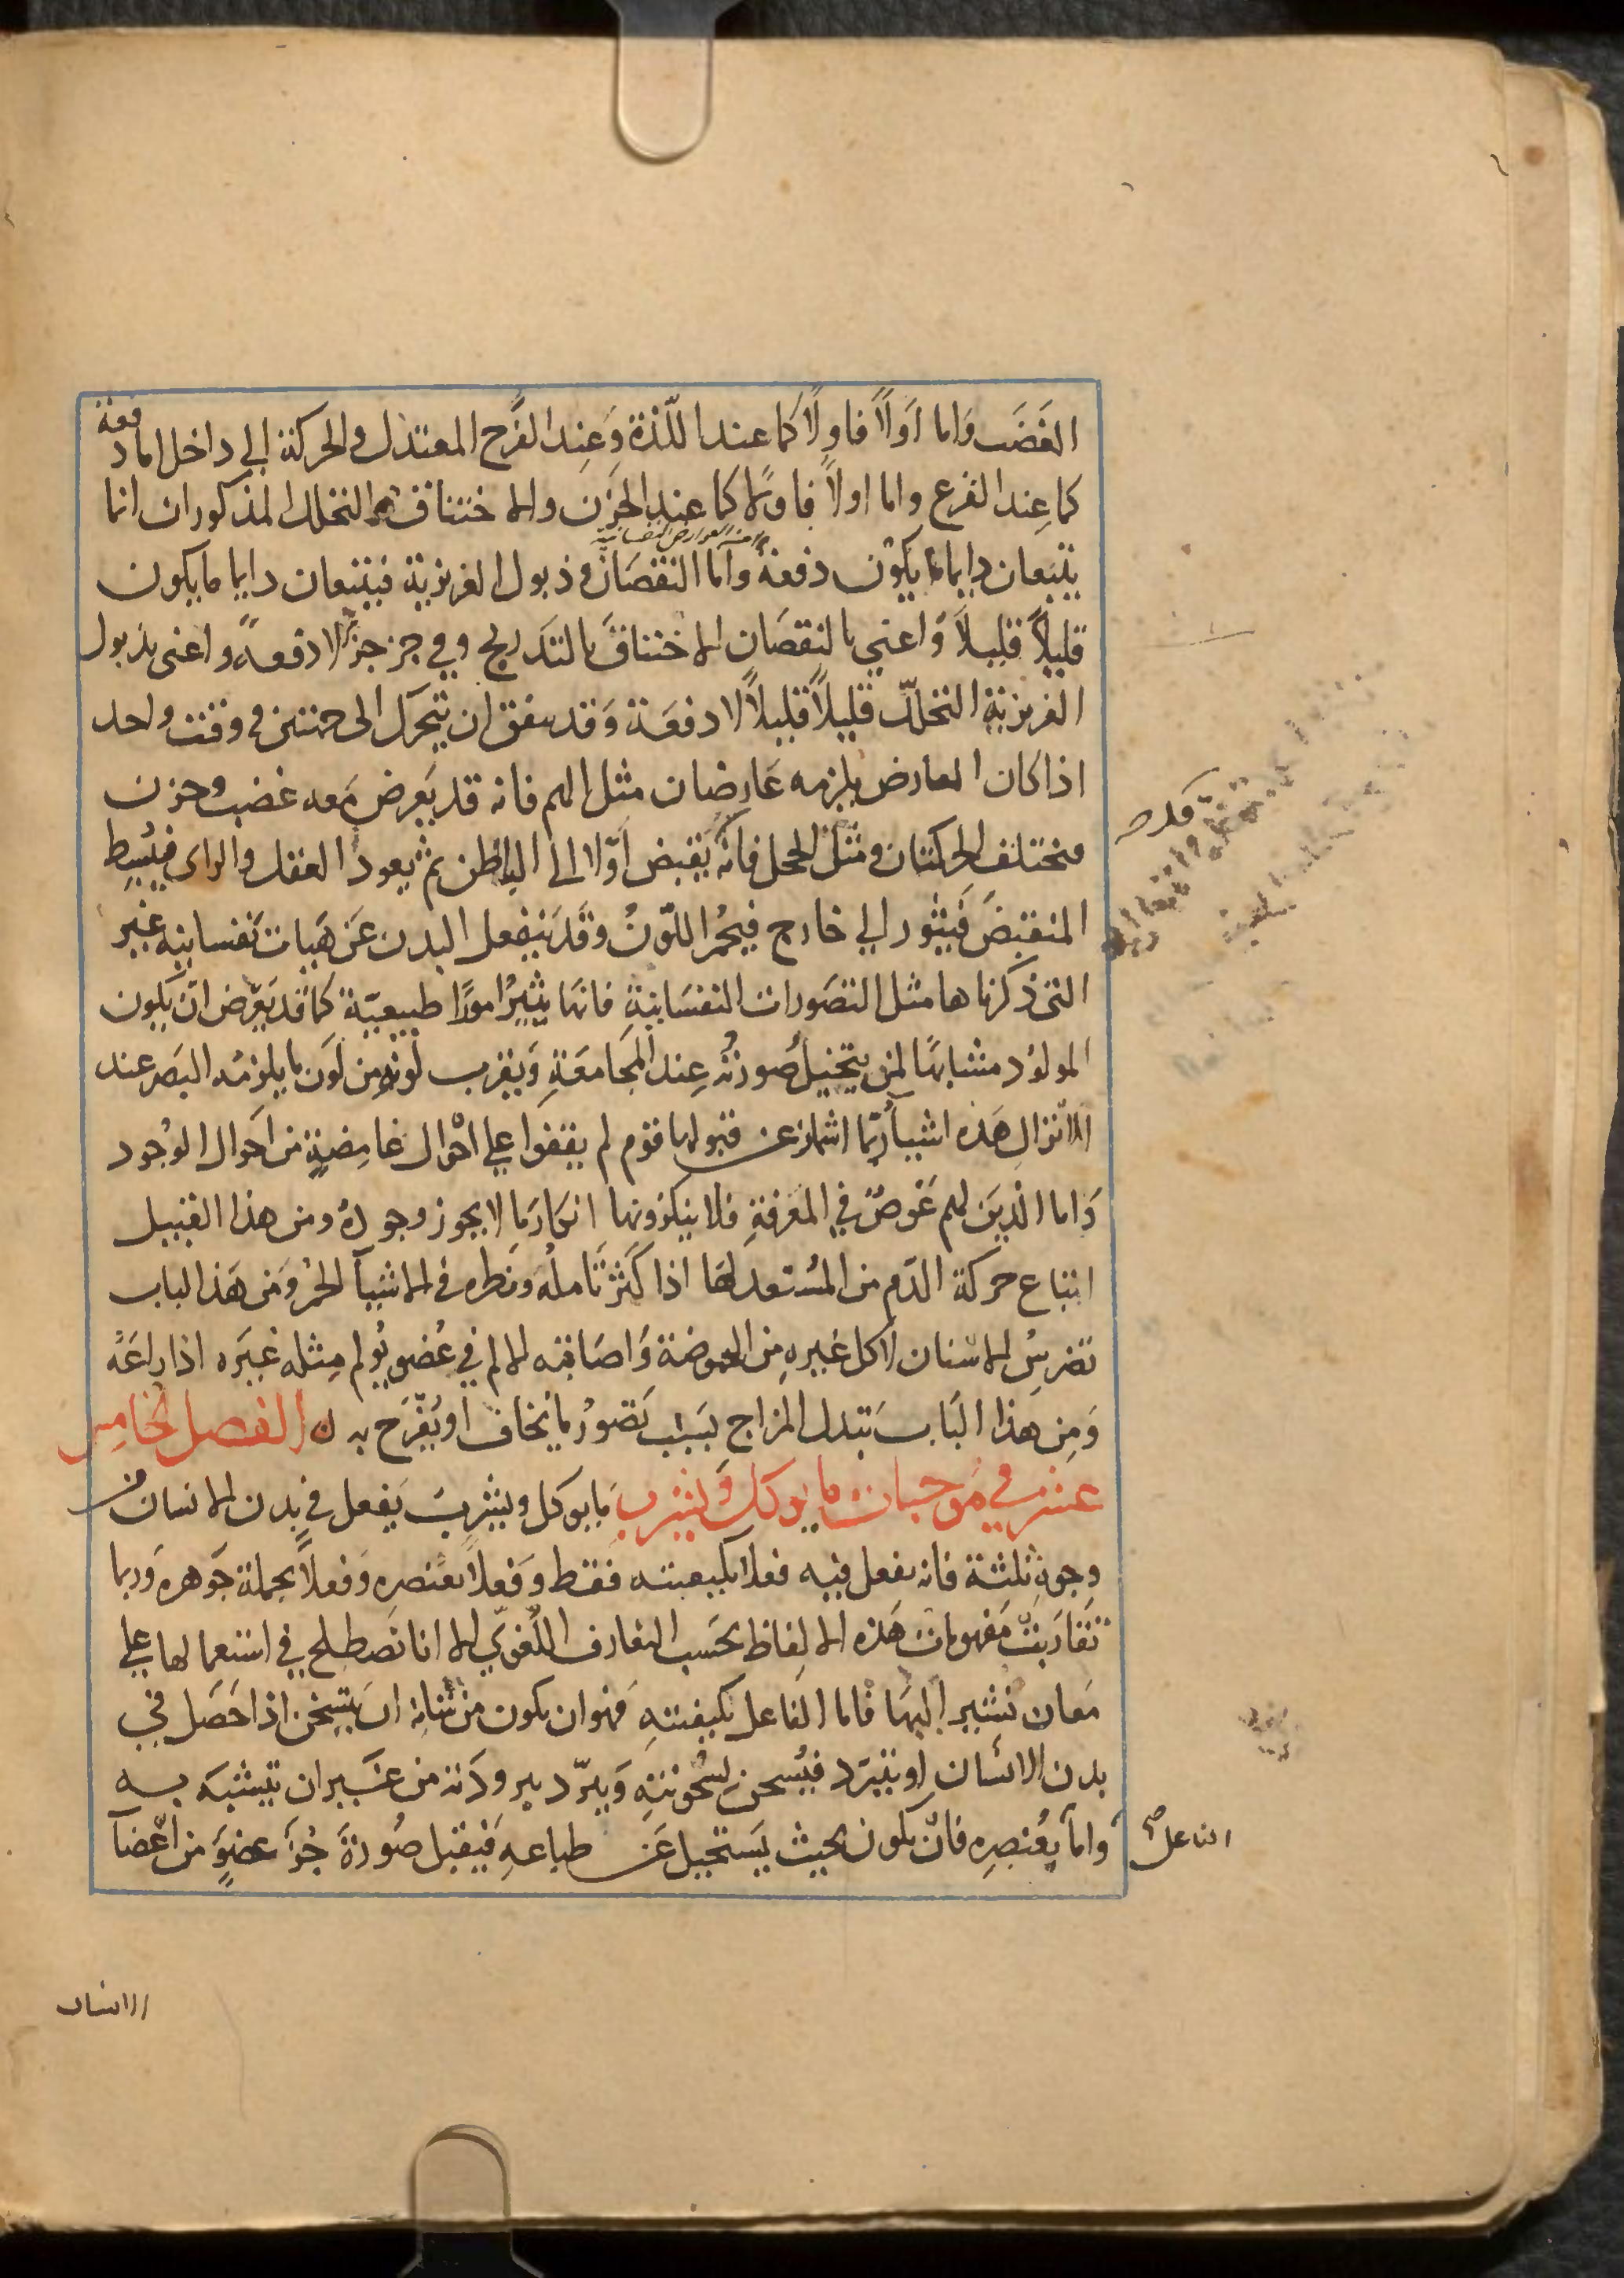 الغَضَب وَاما اَولاً فاولاً كما عند اللّذة وَعِند الفَرح المعتدل والحركة الي داخل اما دفعة
كما عِند الفزع واما اولاً فاولا كما عند الحزن والاختناق والتحلل المذكوران انما
يتبعان دايما ما يكون دفعةً واما النقصان وذبول الغريزية فيتبعان دايما ما يكون
من العوارض النفسانية
قليلاً قليلاً وَاعني بالنقصان الاختناق بالتدريج وفي جز جزٍ لا دفعةً واعني بذبول
الغريزية التحلّل قليلاً قليلاً لا دفعَة وَقد يتفق ان يتحرك الى جهتين في وقت واحد
اذا كان العارض يلزمه عَارِضان مثل الهم فانه قد يَعرض مَعه غضب وحزن
فتختلف الحركتان ومثل الخجل فانّه يَقبض اوّلا الى الباطن ثم يَعود العقل والراى فيُبسِط
المنقبضَ فَيَثور الي خارج فيحمُر اللّونُ وَقد يَنفعل البدن عَن هَيات نَفسانيه غير
التى ذكرناها مثل التصَورات النفسَانيةِ فانها يثيرُ امورًا طبيعيّة كما قد يَعرض ان يكون
المولوُد مشابهًا لمن يتخيل صُورتهُ عِند المجَامعَةِ وَيقرب لونه من لَون ما يلزمُه البصَر عند
الانزالِ هَذه اشيأ ربّما اشمازعن قبولها قوم لم يقفوا علي احوال غامِضةٍ من احوال الوُجود
وَاما الذينَ لهم غوصٌ في المعرفةِ فلا ينكرُونها انكارَ ما لا يجوز وجودهُ ومن هذا القبيل
اتباع حركة الدّم من المسُتعد لهَا اذا كثرَ تَاملهُ ونَظره في الاشيآ الحُمر وَمن هَذا الباب
تضريسُ الاسنان لاكل غيره مِن الحموضة وَاصَابته الالم في عُضو يُولم مِثله غيَره اذا راعَهُ
وَمِن هذا البَاب تبدل المزاج بسَبب تصورُ ما يخاف او يُفَرح به ن الفصل الخامِس
عشر في مَوجبات ما يوكل وَيشرب مَا يوكل ويشرب يَفعل في بدن الانسان من
وجوه ثلثة فانه يفعل فيه فعلا بكيفيته فقط وَفعلاً بعُنصره وَفعلاً بجملة جَوهره وَربما
تقارَبت مَفهومات هَذه الالفاظ بحَسب التعارف اللُغويّ الا انا نَصطلح في استعمالها علي
مَعان نشير اليهَا فاما الفاعل بكيفيتهِ فهَو ان يكون من شانه ان يتسخن اذا حَصَل في
بدن الانسان او يتبرّد فيُسحن لسخونتهِ وَيبرّد ببرودَته من غَير ان يَتشبَه بـه
وامآ بعُنصره فان يكون بحيث يَستحيل عَن طباعهِ فيَقبل صُورة جُزء عضوٍ من اعْضآ
الفاعل صح
الانسان